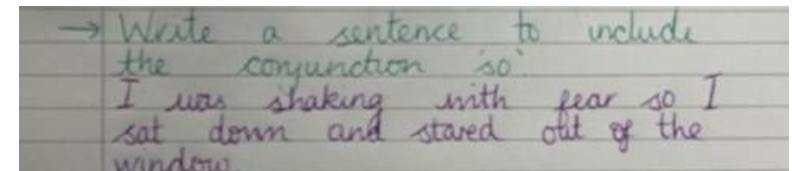 → Write a sentence to include
the conjunction 'so'.
I was shaking with fear so I
sat down and stared out of the
window.